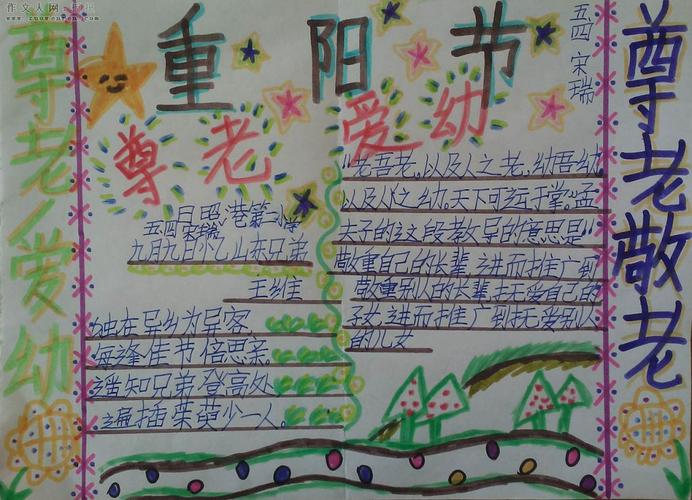 作文人网
www.zuowenren.com
重阳节
五四 宋瑞
尊老爱幼
尊老爱幼
五四日照港第二小学
宋瑞
九月九日忆山东兄弟
王维
独在异乡为异客,
每逢佳节倍思亲。
遥知兄弟登高处
遍插茱萸少一人。
"老吾老,以及人之老,幼吾幼,
以及人之幼。天下可运于掌。孟
夫子的这段教导的意思是"
敬重自己的长辈进而推广到
敬重别人的长辈抚爱自己的
子女进而推广到抚爱别人
的儿女
尊老敬老